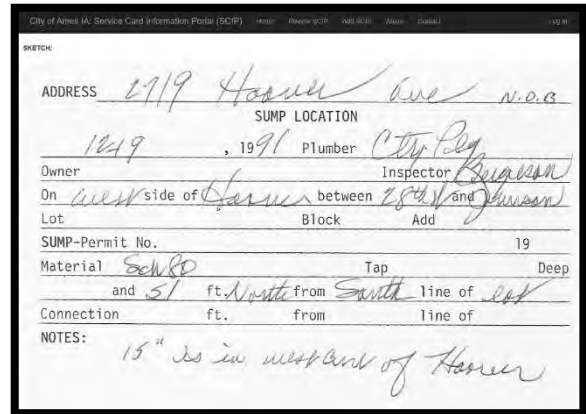 City of Ames IA: Service Card Information Portal (SCIP) Home Review SCIP Add SCIP About Contact Log in
SKETCH:
ADDRESS 2719 Hoover Ave N.O.B
SUMP LOCATION
1249 , 1991 Plumber Cty Plg
Owner Inspector Burgeson
On West side of Hoover between 28th and
Lot Block Add
SUMP-Permit No. 19
Material Sch 80 Tap Deep
and 51 ft. North from South line of lot
Connection ft. from line of
NOTES:
15" is in west of Hoover